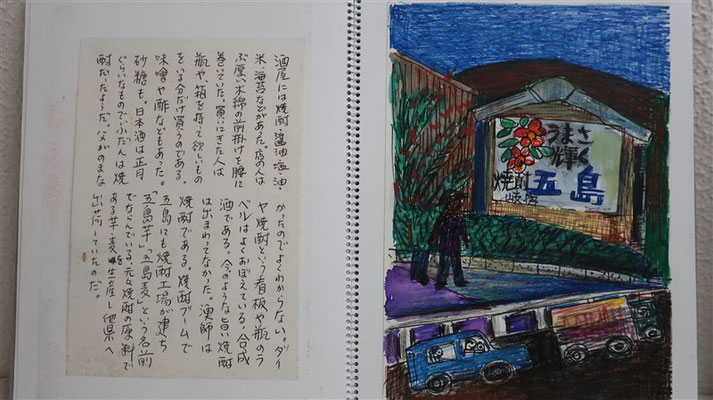 酒屋には焼酎、醤油、塩、油、
米、海苔などがあった。店の人は
ぶ厚い木綿の前掛けを腰に
巻いていた。買いにきた人は
瓶や、箱を持って欲しいもの
をいる分だけ買うのである。
味噌や酢などもあった。
砂糖も。日本酒は正月
ぐらいなもので、ふだんは焼
酎だったようだ。父がのまな
かったのでよくわからない。ダイ
ヤ焼酎という看板や瓶のラ
ベルはよくおぼえている。合成
酒である。今のような旨い焼酎
は出まわってなかった。漁師は
焼酎である。焼酎ブームで
五島にも焼酎工場が建ち
「五島芋」「五島麦」という名前
でならんでいる。元々焼酎の原料で
ある芋、麦を生産し他県へ
出荷していたのだ。
うまさ
輝く
焼酎
五島